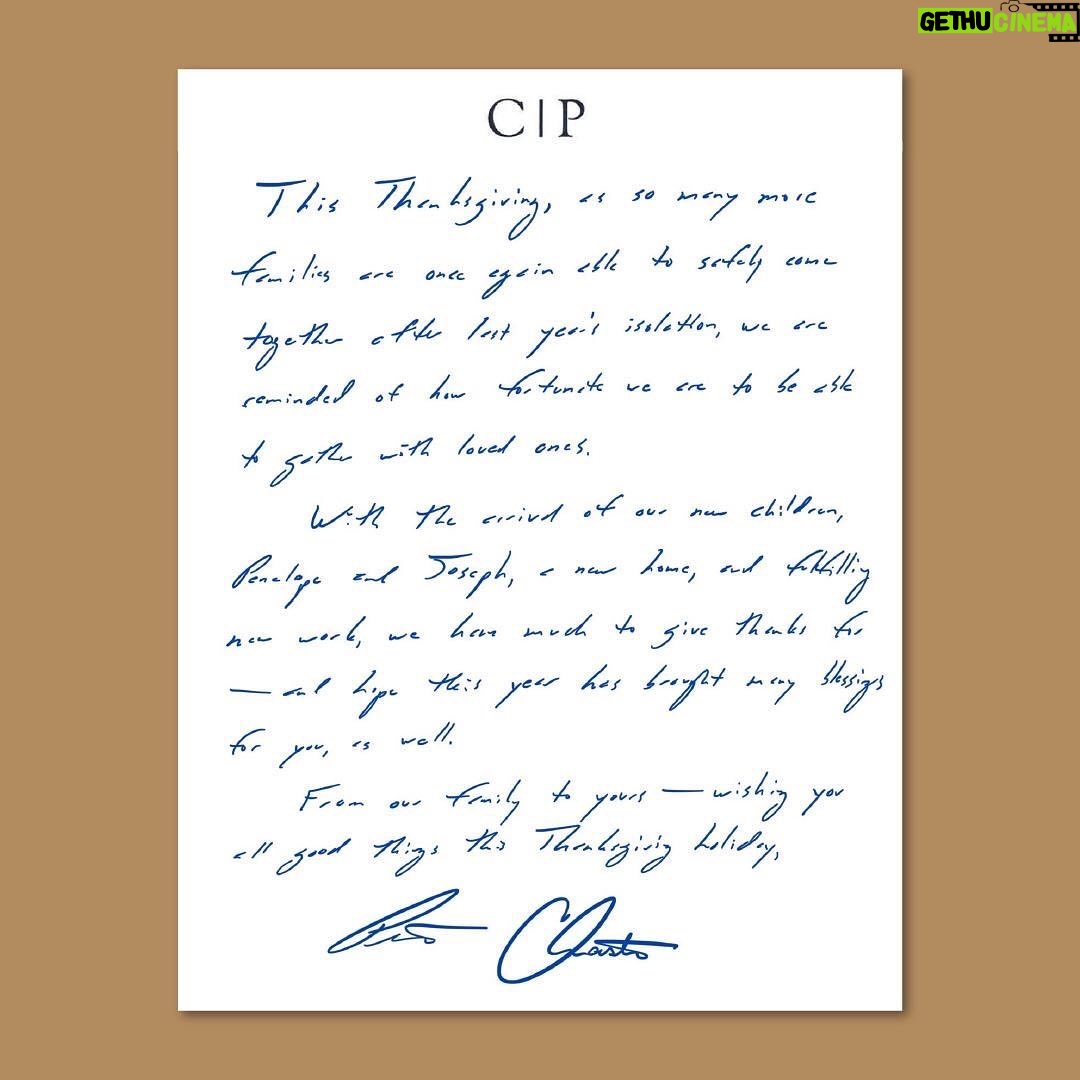 GETHUCINEMA
C|P
This Thanksgiving, as so many more
families are once again able to safely come
together after last year's isolation, we are
reminded of how fortunate we are to be able
to gather with loved ones.
With the arrival of our new children,
Penelope and Joseph, a new home, and fulfilling
new work, we have much to give thanks for
— and hope this year has brought many blessings
for you, as well.
From our family to yours — wishing you
all good things this Thanksgiving holiday,
Pete Chasten